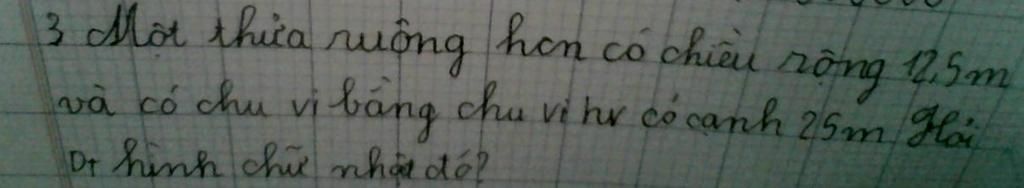 3 Một thửa ruộng hcn có chiều rộng 12,5m
và có chu vi bằng chu vi hv có cạnh 25m Hỏi
Dt hình chữ nhật đó?